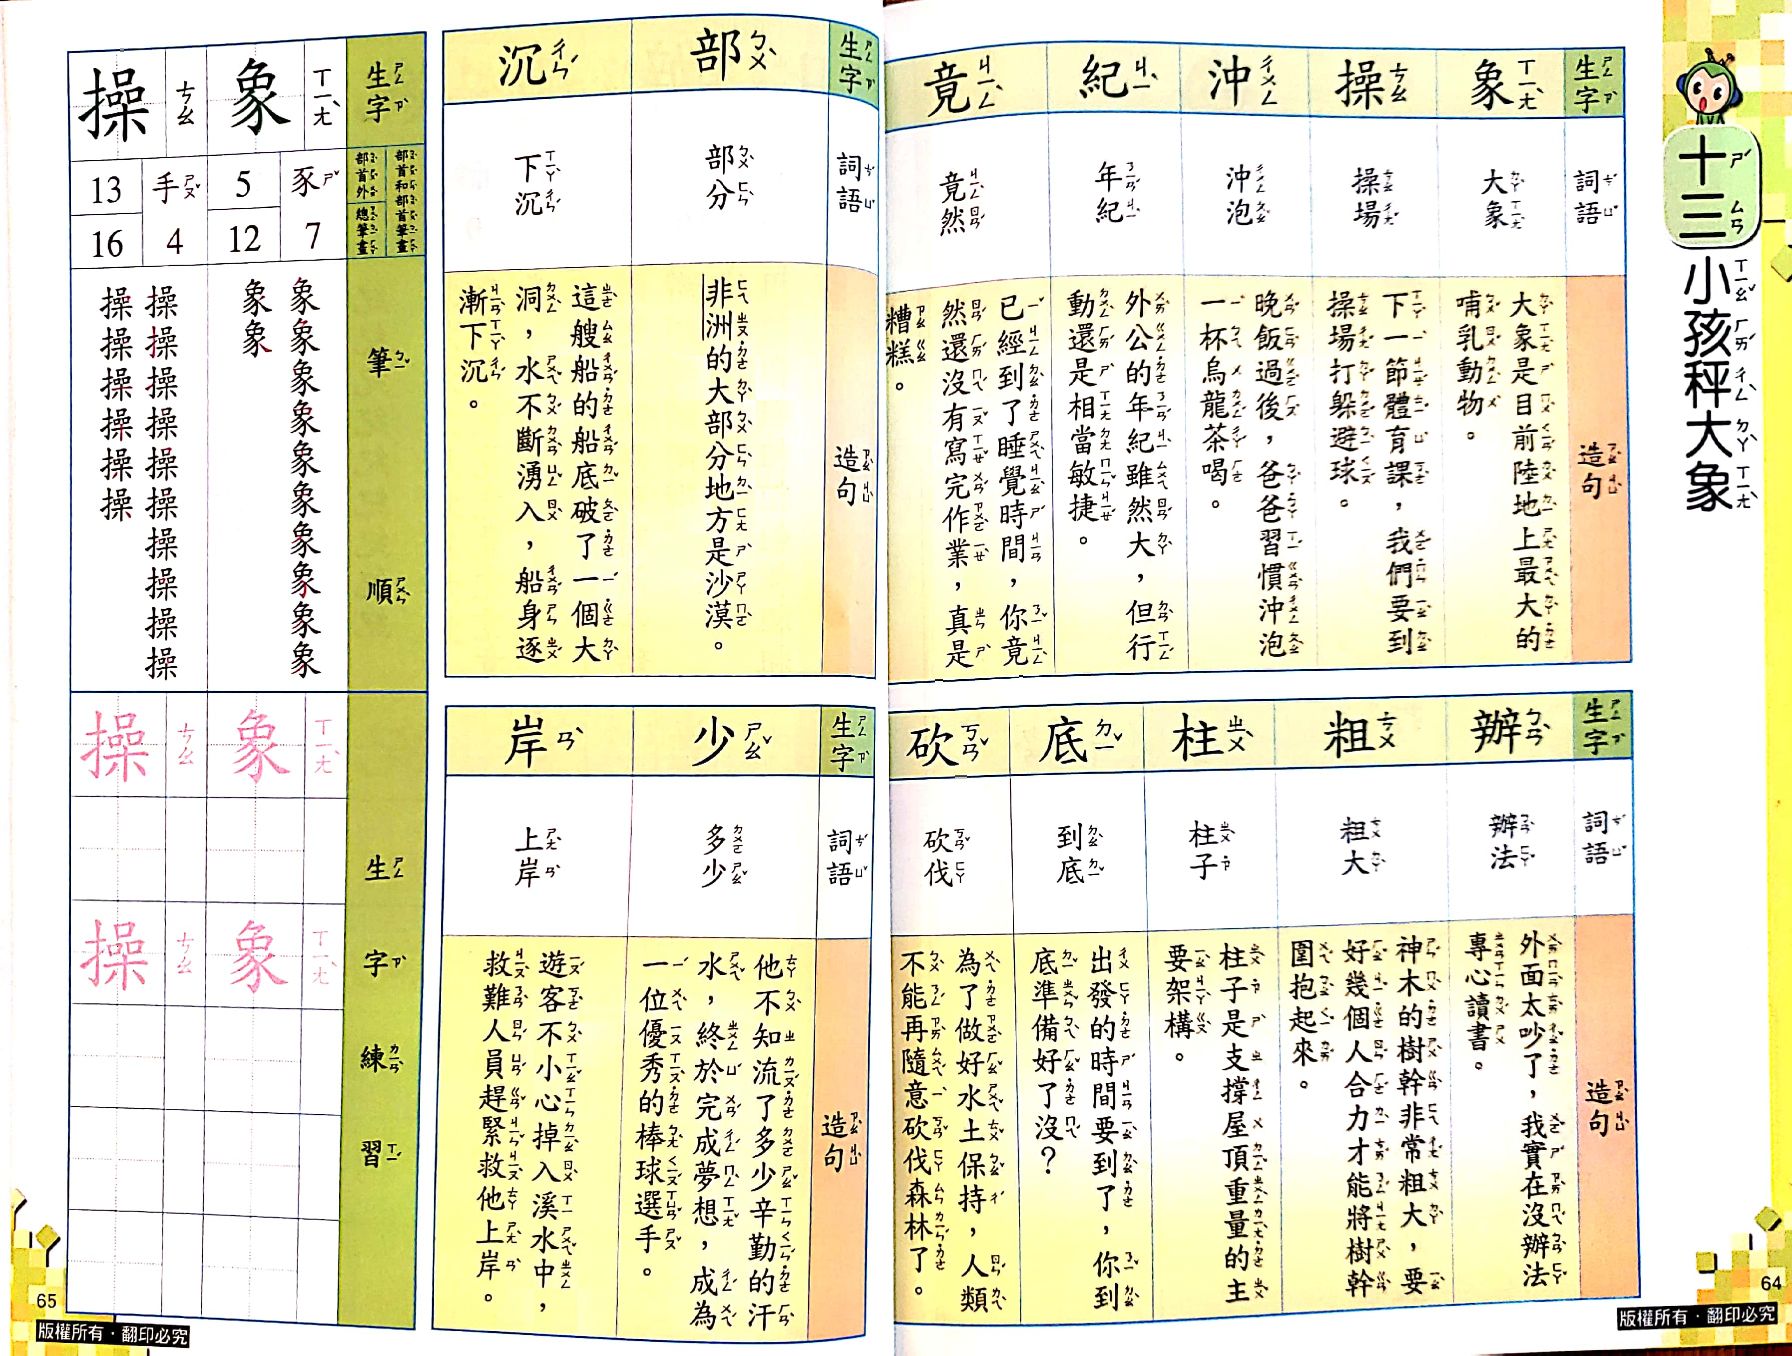 十三 小孩秤大象
生字
象
操
沖
紀
竟
詞語
大象
操場
沖泡
年紀
竟然
造句
大象是目前陸地上最大的
哺乳動物。
下一節體育課，我們要到
操場打躲避球。
晚飯過後，爸爸習慣沖泡
一杯烏龍茶喝。
外公的年紀雖然大，但行
動還是相當敏捷。
已經到了睡覺時間，你竟
然還沒有寫完作業，真是
糟糕。
生字
辦
粗
柱
底
砍
詞語
辦法
粗大
柱子
到底
砍伐
造句
外面太吵了，我實在沒辦法
專心讀書。
神木的樹幹非常粗大，要
好幾個人合力才能將樹幹
圍抱起來。
柱子是支撐屋頂重量的主
要架構。
出發的時間要到了，你到
底準備好了沒？
為了做好水土保持，人類
不能再隨意砍伐森林了。
64
版權所有・翻印必究
生字
部
沉
詞語
部分
下沉
造句
非洲的大部分地方是沙漠。
這艘船的船底破了一個大
洞，水不斷湧入，船身逐
漸下沉。
生字
少
岸
詞語
多少
上岸
造句
他不知流了多少辛勤的汗
水，終於完成夢想，成為
一位優秀的棒球選手。
遊客不小心掉入溪水中，
救難人員趕緊救他上岸。
生字
象 ㄒㄧㄤˋ
操 ㄘㄠ
部首和部首筆畫
部首外 總筆畫
豕 7
5 12
手 4
13 16
筆順
象象象象象象象象象象
象象
操操操操操操操操操操
操操操操操操
生字練習
象 ㄒㄧㄤˋ
操 ㄘㄠ
象 ㄒㄧㄤˋ
操 ㄘㄠ
65
版權所有・翻印必究